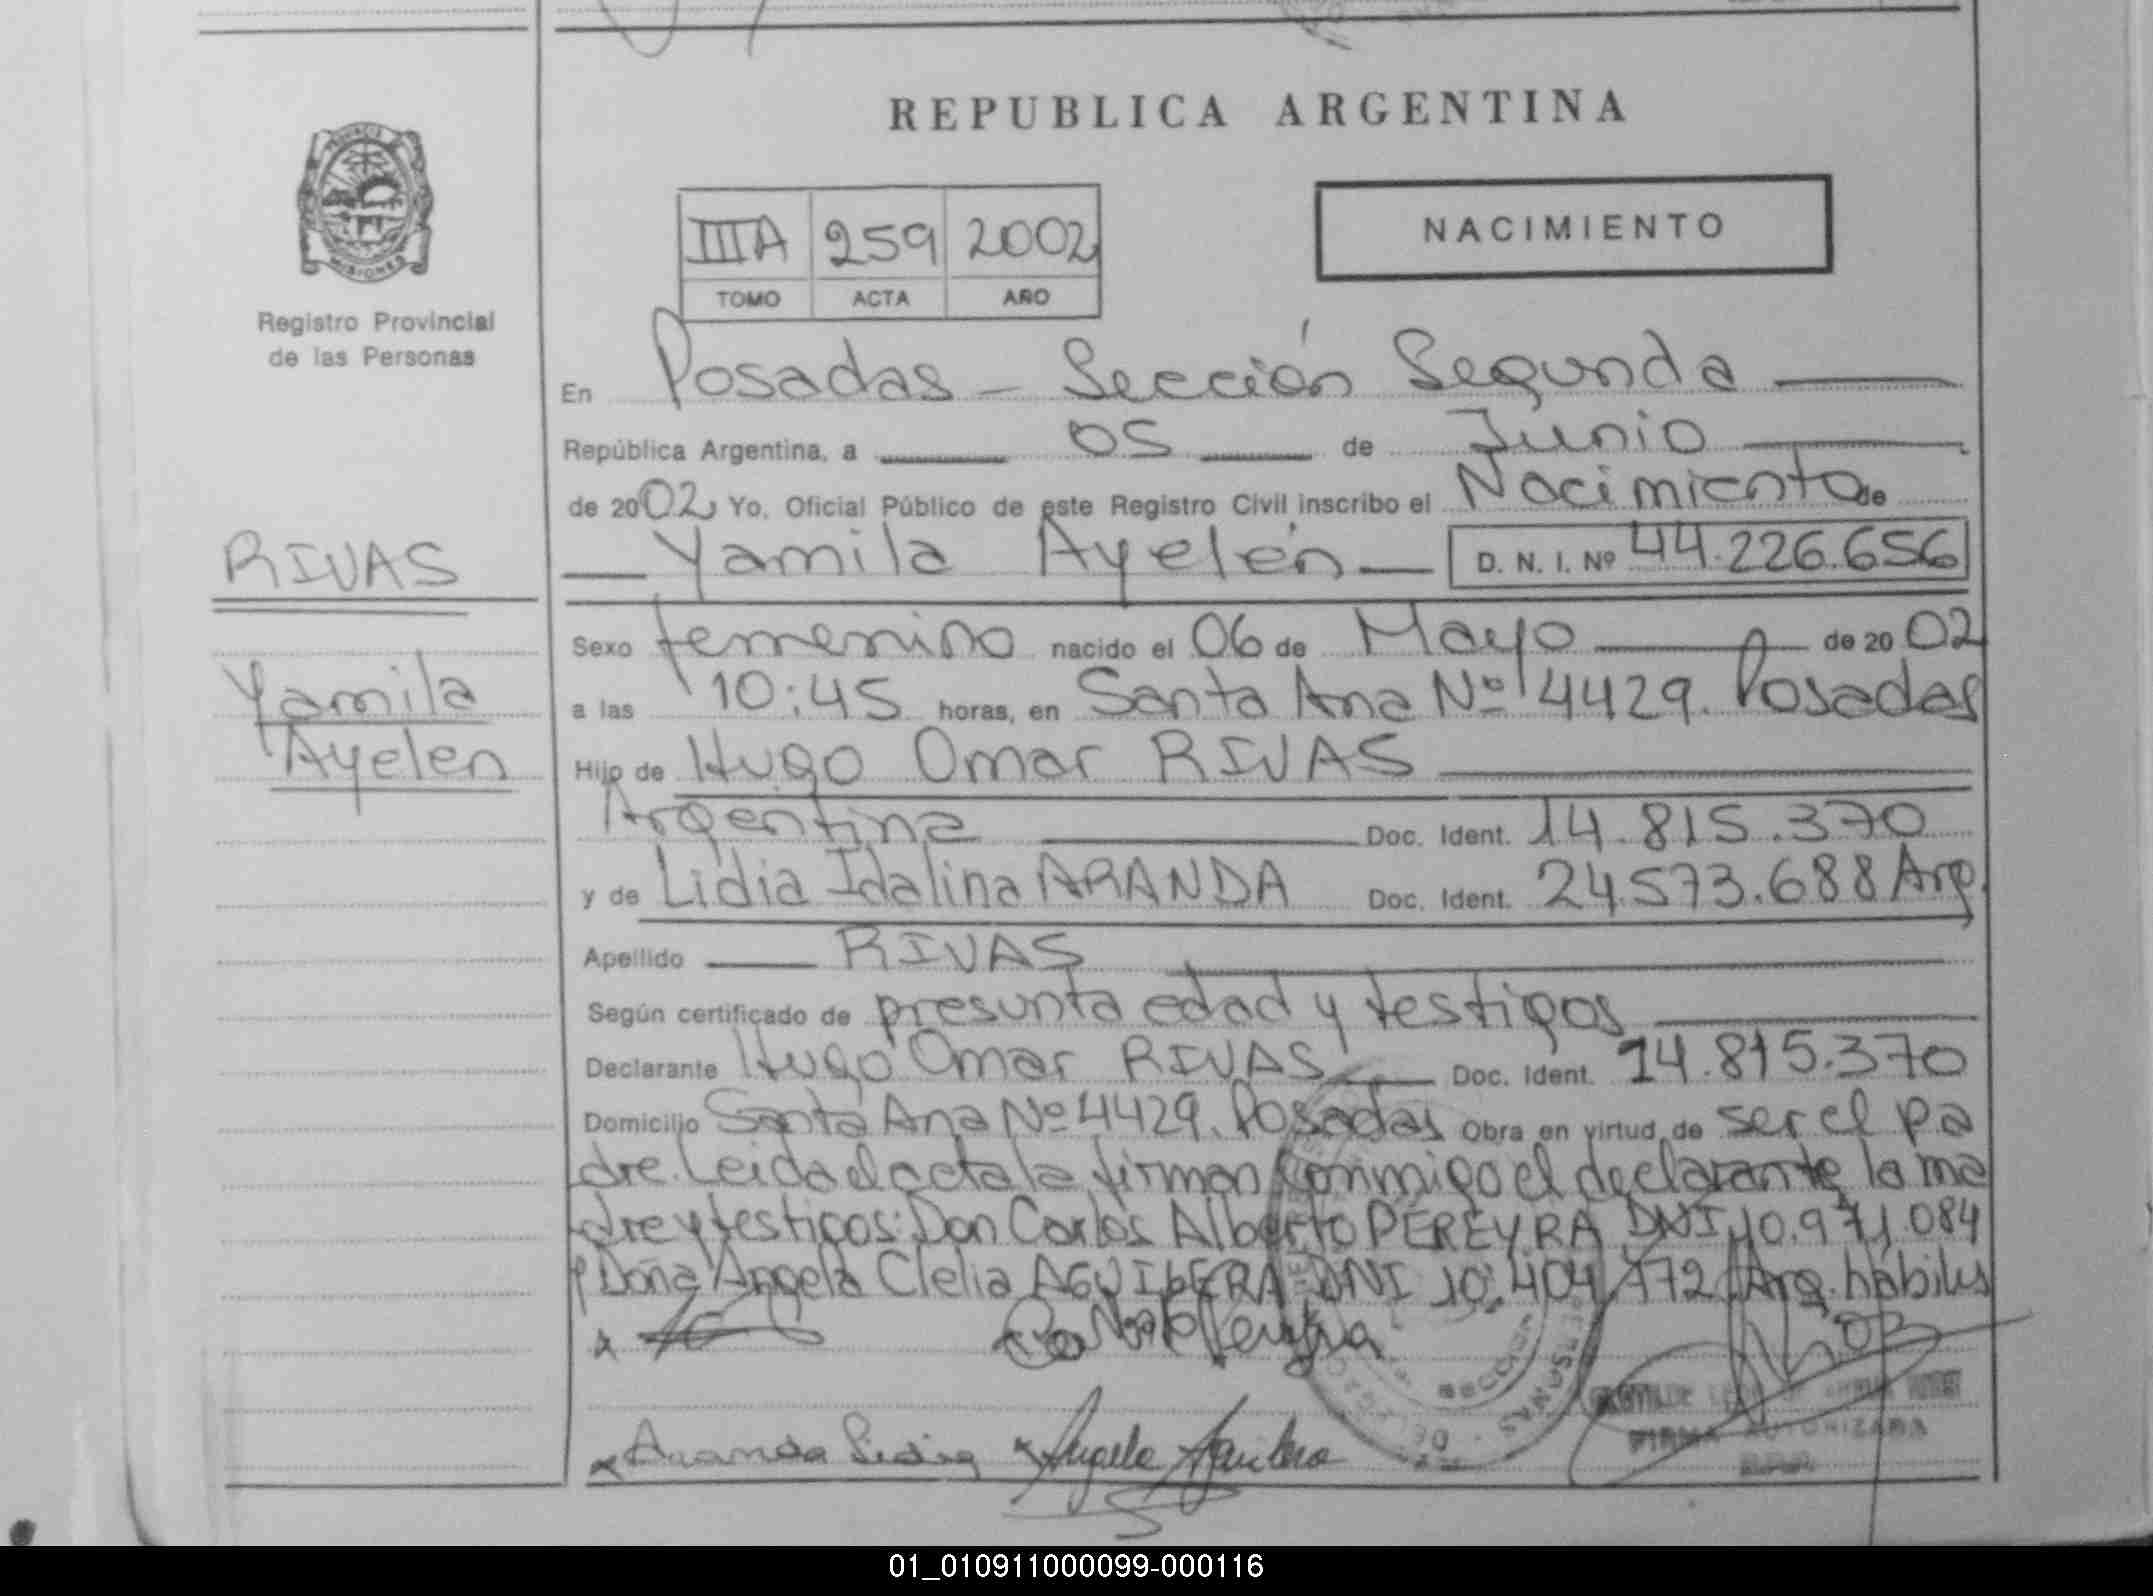 REPUBLICA ARGENTINA
PROVINCIA
MISIONES
Registro Provincial
de las Personas
IIIA 259 2002
TOMO ACTA AÑO
NACIMIENTO
En Posadas - Sección Segunda
República Argentina, a 05 de Junio
de 2002 Yo, Oficial Público de este Registro Civil inscribo el Nacimiento de
Yamila Ayelén D. N. I. Nº 44.226.656
RIVAS
Yamila
Ayelen
Sexo femenino nacido el 06 de Mayo de 2002
a las 10:45 horas, en Santa Ana Nº 4429. Posadas
Hijo de Hugo Omar RIVAS
Argentina Doc. Ident. 14.815.370
y de Lidia Idalina ARANDA Doc. Ident. 24.573.688 Arg.
Apellido RIVAS
Según certificado de presunta edad y testigos
Declarante Hugo Omar RIVAS Doc. Ident. 14.815.370
Domicilio Santa Ana Nº 4429. Posadas Obra en virtud de ser el pa
dre. Leida el acta la firman conmigo el declarante la ma
dre y testigos: Don Carlos Alberto PEREYRA DNI 10.971.084
y Doña Angela Clelia AGUILERA DNI 10.404.772 Arg. habiles
Aranda Lidia Angela Aguilera
FIRMA AUTORIZADA
01_010911000099-000116